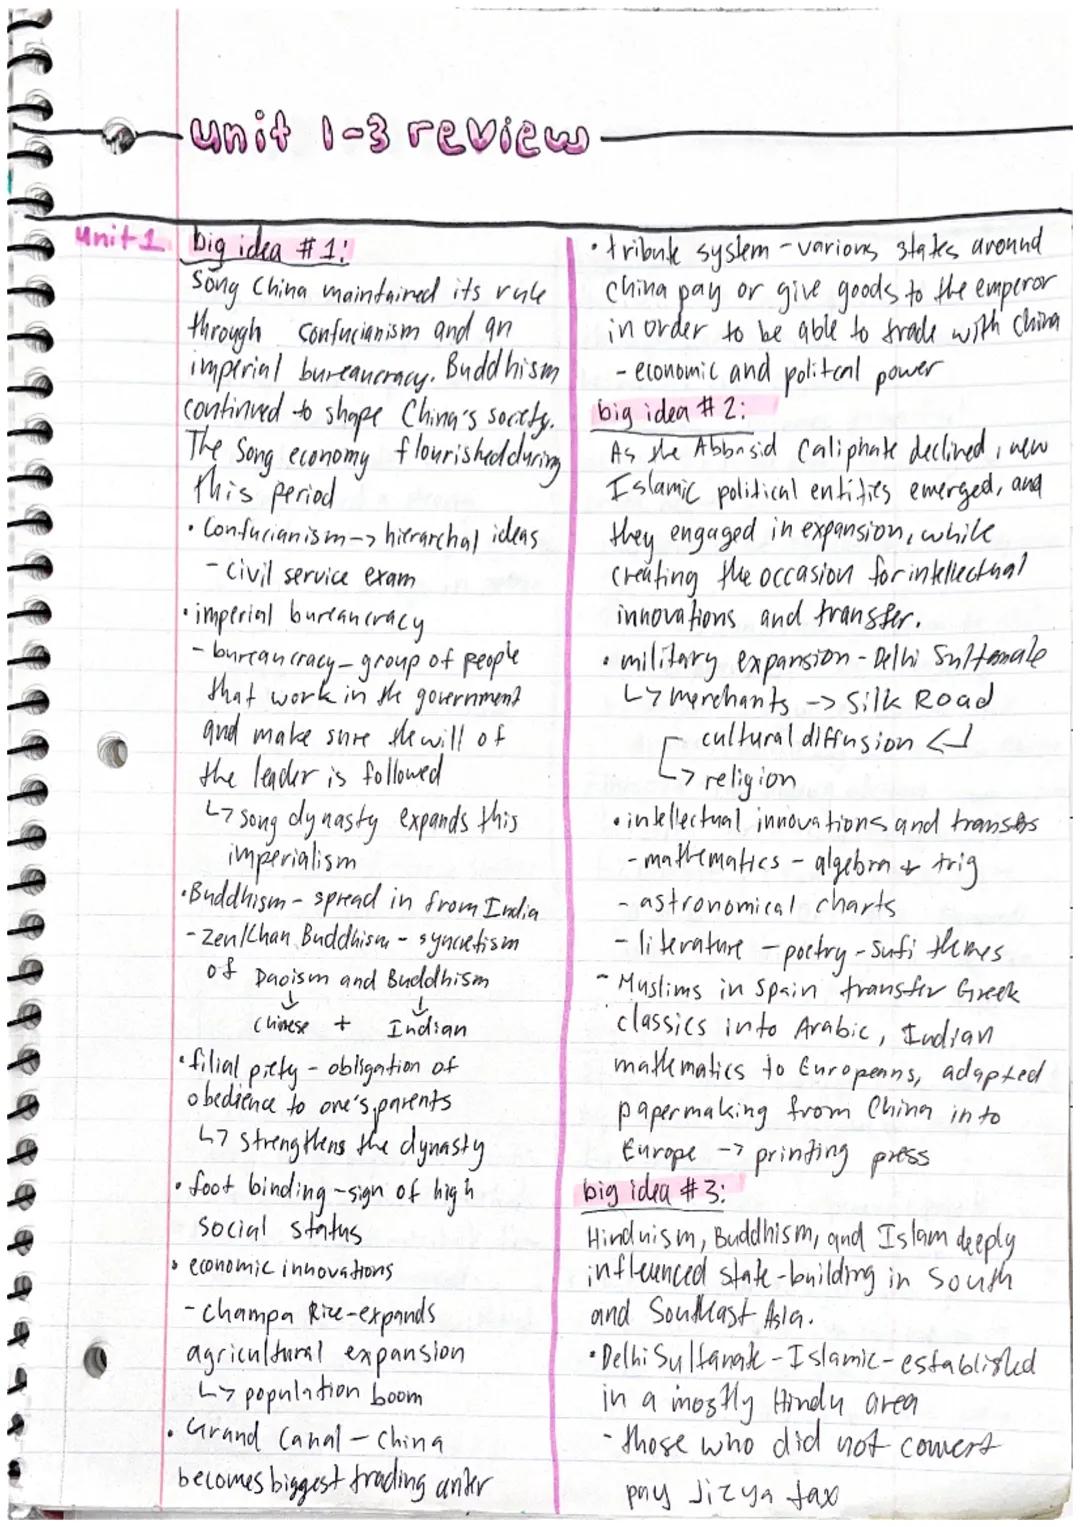 unit 1-3 review
Unit 1
big idea #1:
Song China maintained its rule
through confucianism and an
imperial bureaucracy. Buddhism
continued to shape China's society.
The Song economy flourished during
this period
• Confucianism -> hierarchal ideas
- civil service exam
• imperial bureaucracy
- bureaucracy - group of people
that work in the government
and make sure the will of
the leader is followed
↳ song dynasty expands this
imperialism
• Buddhism - spread in from India
- Zen/Chan Buddhism - syncretism
of Daoism and Buddhism
↓ ↓
Chinese + Indian
• filial piety - obligation of
obedience to one's parents
↳ strengthens the dynasty
• foot binding - sign of high
social status
• economic innovations
- Champa Rice - expands
agricultural expansion
↳ population boom
• Grand Canal - China
becomes biggest trading anter
• tribute system - various states around
china pay or give goods to the emperor
in order to be able to trade with China
- economic and politcal power
big idea #2:
As the Abbasid Caliphate declined, new
Islamic political entities emerged, and
they engaged in expansion, while
creating the occasion for intellectual
innovations and transfer.
• military expansion - Delhi Sultanate
↳ merchants -> Silk Road
cultural diffusion ↲
↳ religion
• intellectual innovations and transfers
- mathematics - algebra & trig
- astronomical charts
- literature - poetry - Sufi themes
- Muslims in Spain transfer Greek
classics into Arabic, Indian
mathematics to Europeans, adapted
papermaking from China into
Europe -> printing press
big idea #3:
Hinduism, Buddhism, and Islam deeply
influenced state-building in South
and Southeast Asia.
• Delhi Sultanate - Islamic - established
in a mostly Hindu area
- those who did not convert
pay Jizya tax